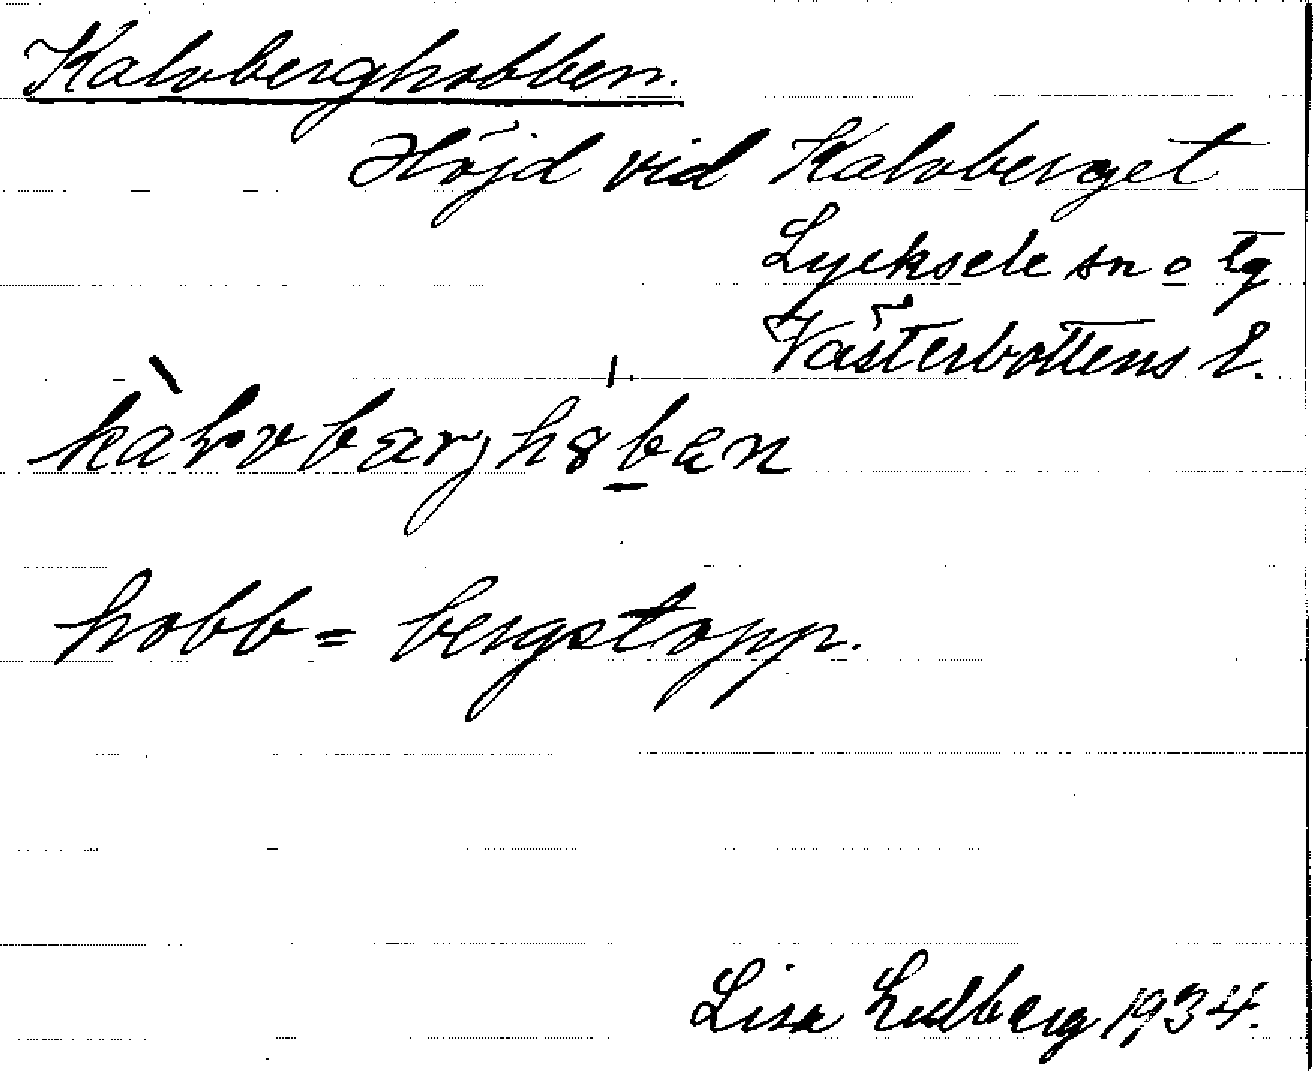 Kalvberghobben.
Höjd vid Kalvberget
Lycksele sn o tg
Västerbottens l.
hobb = bergstopp.
Lisa Lidberg 1934.